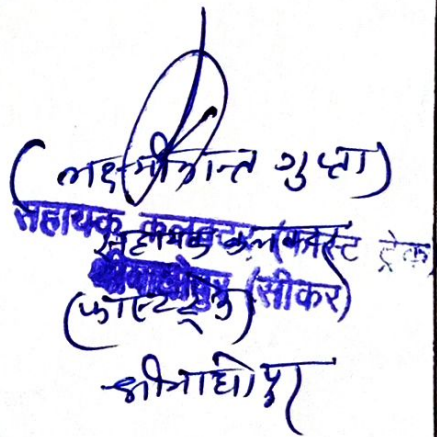 (लक्ष्मीकान्त गुप्ता)
सहायक कलक्टर (फास्ट ट्रेक)
सहायक कलक्टर
श्रीमाधोपुर (सीकर)
(फास्ट ट्रेक)
श्रीमाधोपुर